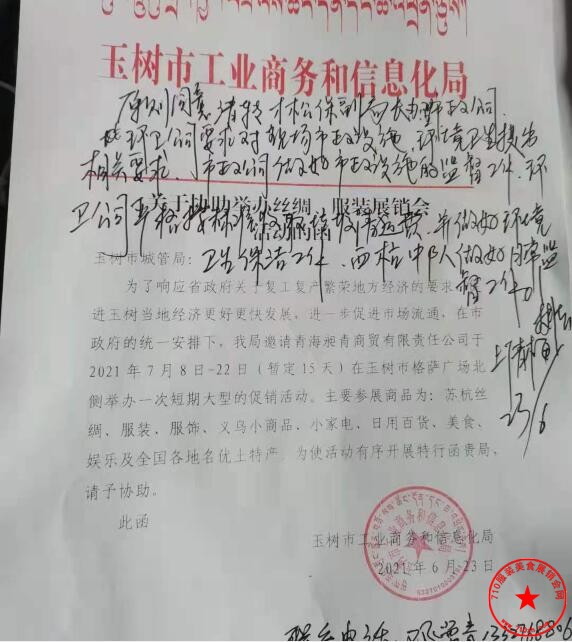 玉树市工业商务和信息化局
原则同意请转才松保副局长办市政公司
环卫公司要求对现场市政设施、环境卫生提出
相关要求、市政公司做好市政设施的监督工作、环
关于协助举办丝绸、服装展销会
活动的函
卫公司严格按标准收缴垃圾费、并做好环境
玉树市城管局:
卫生保洁工作、西杭中队做好日常监
督工作。
为了响应省政府关于复工复产繁荣地方经济的要求
进玉树当地经济更好更快发展,进一步促进市场流通,在市
政府的统一安排下,我局邀请青海昶青商贸有限责任公司于
2021年7月8日-22日(暂定15天)在玉树市格萨广场北
侧举办一次短期大型的促销活动。主要参展商品为:苏杭丝
绸、服装、服饰、义乌小商品、小家电、日用百货、美食、
娱乐及全国各地名优土特产。为使活动有序开展特行函贵局,
请予协助。
此函
23/6
玉树市工业商务和信息化局
2021年6月23日
710服装美食展销会网
联系电话